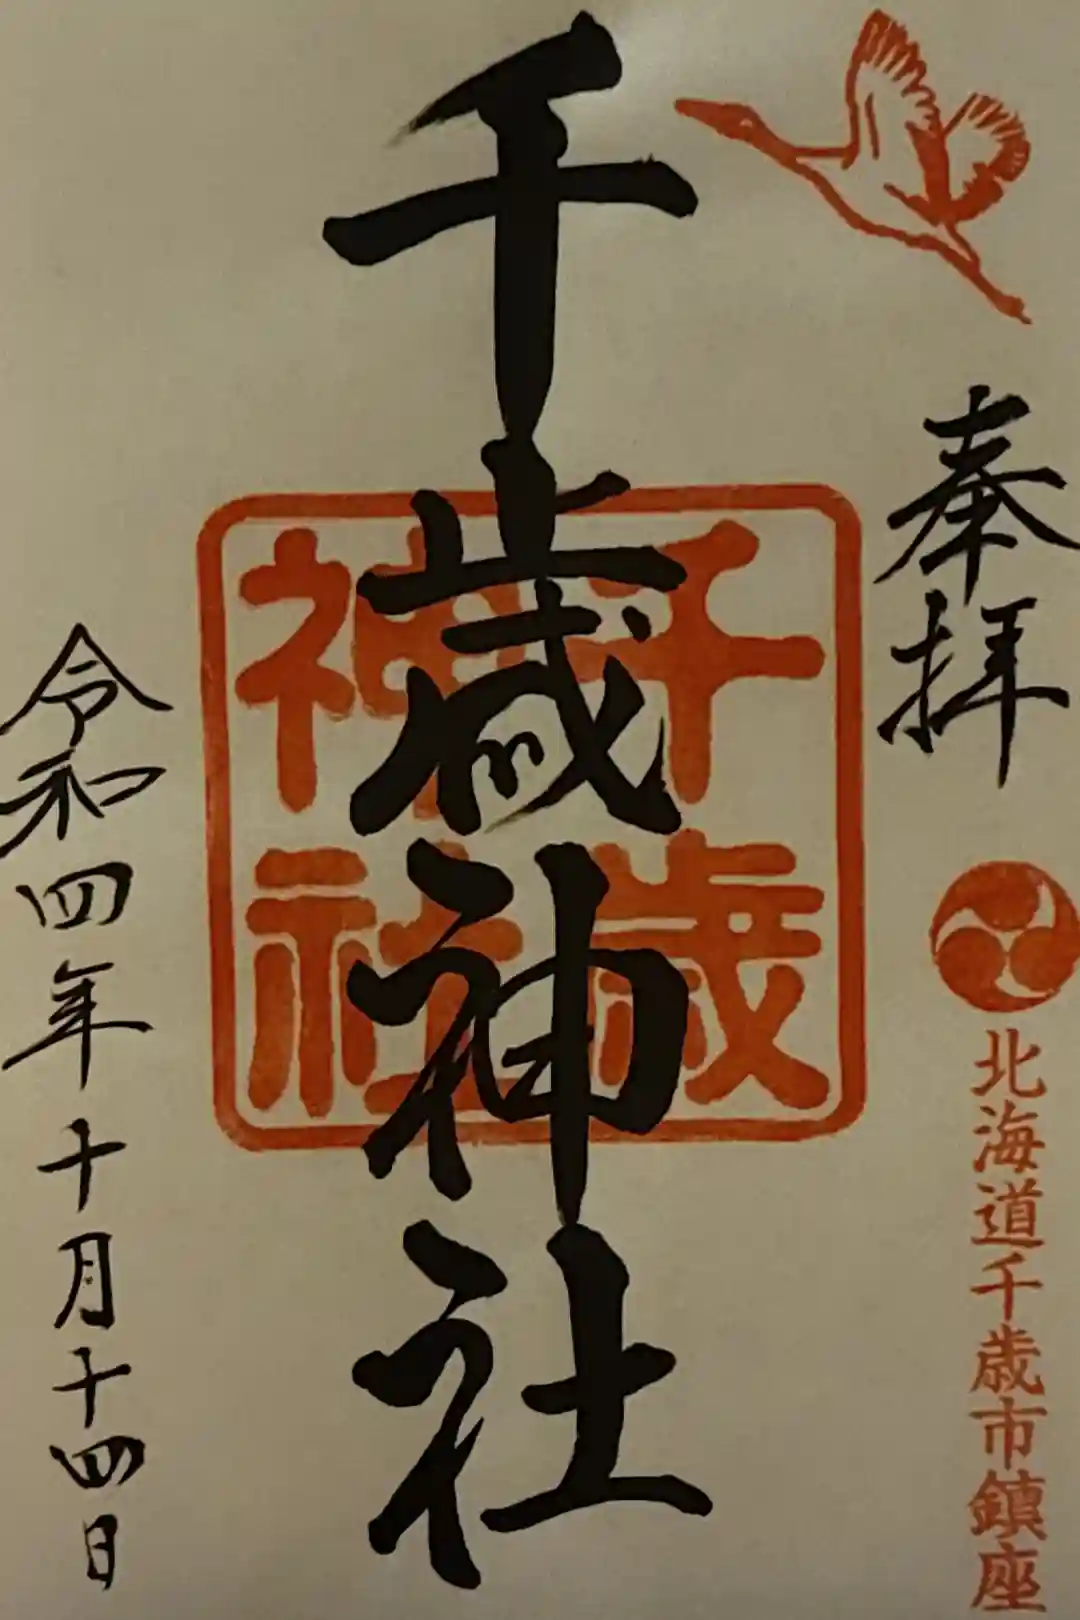 奉拝
北海道千歳市鎮座
千歳神社
千歳
神社
令和四年十月十四日